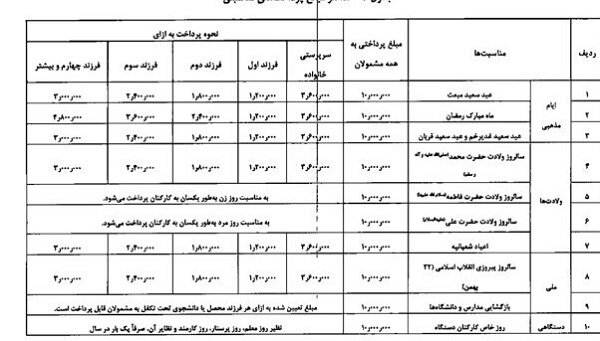 نحوه پرداخت به ازای
ردیف مناسبت‌ها مبلغ پرداختی به همه مشمولان سرپرستی خانواده فرزند اول فرزند دوم فرزند سوم فرزند چهارم و بیشتر
ایام مذهبی
۱ عید سعید مبعث ۱۰٫۰۰۰٫۰۰۰ ۳٫۶۰۰٫۰۰۰ ۱٫۲۰۰٫۰۰۰ ۱٫۸۰۰٫۰۰۰ ۲٫۴۰۰٫۰۰۰ ۳٫۰۰۰٫۰۰۰
۲ ماه مبارک رمضان ۱۰٫۰۰۰٫۰۰۰ ۳٫۶۰۰٫۰۰۰ ۱٫۲۰۰٫۰۰۰ ۱٫۸۰۰٫۰۰۰ ۳٫۶۰۰٫۰۰۰ ۴٫۸۰۰٫۰۰۰
۳ عید سعید غدیرخم و عید سعید قربان ۱۰٫۰۰۰٫۰۰۰ ۳٫۶۰۰٫۰۰۰ ۱٫۲۰۰٫۰۰۰ ۱٫۸۰۰٫۰۰۰ ۲٫۴۰۰٫۰۰۰ ۳٫۰۰۰٫۰۰۰
ولادت‌ها
۴ سالروز ولادت حضرت محمد ۱۰٫۰۰۰٫۰۰۰ ۳٫۶۰۰٫۰۰۰ ۱٫۲۰۰٫۰۰۰ ۱٫۸۰۰٫۰۰۰ ۲٫۴۰۰٫۰۰۰ ۳٫۰۰۰٫۰۰۰
۵ سالروز ولادت حضرت فاطمه ۱۰٫۰۰۰٫۰۰۰ به مناسبت روز زن به‌طور یکسان به کارکنان پرداخت می‌شود.
۶ سالروز ولادت حضرت علی ۱۰٫۰۰۰٫۰۰۰ به مناسبت روز مرد به‌طور یکسان به کارکنان پرداخت می‌شود.
۷ اعیاد شعبانیه ۱۰٫۰۰۰٫۰۰۰ ۳٫۶۰۰٫۰۰۰ ۱٫۲۰۰٫۰۰۰ ۱٫۸۰۰٫۰۰۰ ۲٫۴۰۰٫۰۰۰ ۳٫۰۰۰٫۰۰۰
ملی
۸ سالروز پیروزی انقلاب اسلامی (۲۲ بهمن) ۱۰٫۰۰۰٫۰۰۰ ۳٫۶۰۰٫۰۰۰ ۱٫۲۰۰٫۰۰۰ ۱٫۸۰۰٫۰۰۰ ۲٫۴۰۰٫۰۰۰ ۳٫۰۰۰٫۰۰۰
۹ بازگشایی مدارس و دانشگاه‌ها ۱۰٫۰۰۰٫۰۰۰ مبلغ تعیین شده به ازای هر فرزند محصل یا دانشجوی تحت تکفل به مشمولان قابل پرداخت است.
۱۰ دستگاهی روز خاص کارکنان دستگاه ۱۰٫۰۰۰٫۰۰۰ نظیر روز معلم، روز پرستار، روز کارمند و نظایر آن، صرفاً یک بار در سال